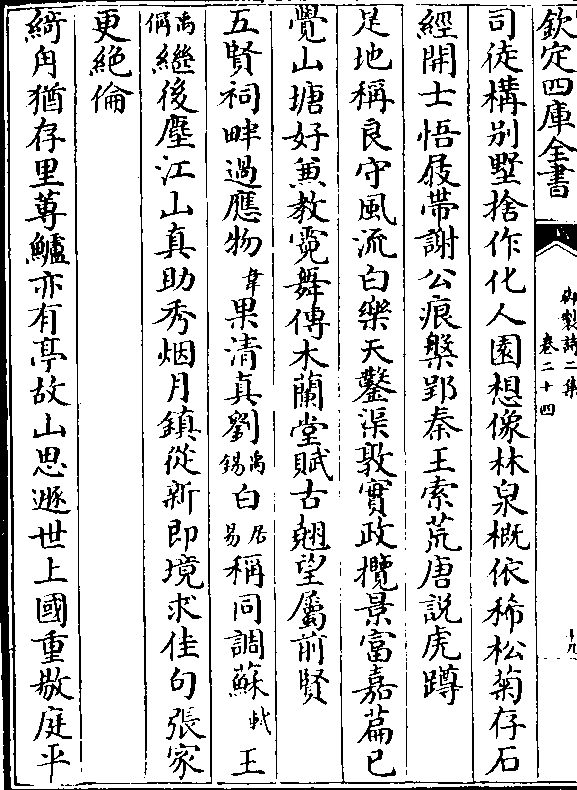 欽定四庫全書
御製詩二集
卷二十四
十九
司徒構别墅捨作化人園想像林泉概依稀松菊存石
經開士悟屐帶謝公痕槃郢秦王索荒唐説虎蹲
足地稱良守風流白樂天鑿渠敦實政攬景富嘉篇已
覺山塘好兼教霓舞傳木蘭堂賦古翹望屬前賢
五賢祠畔過應物韋果清真劉禹錫白居易稱同調蘇軾王
禹偁繼後塵江山真助秀烟月鎮從新即境求佳句張家
更絶倫
綺角猶存里蓴鱸亦有亭故山思遯世上國重敭庭平